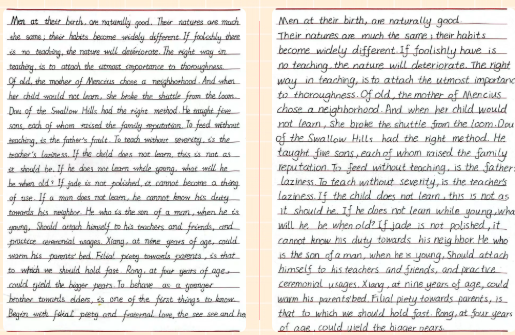 Men at their birth, are naturally good. Their natures are much
the same; their habits become widely different. If foolishly there
is no teaching, the nature will deteriorate. The right way in
teaching, is to attach the utmost importance to thoroughness.
Of old, the mother of Mencius chose a neighborhood. And when
her child would not learn, she broke the shuttle from the loom.
Dou of the Swallow Hills had the right method. He taught five
sons, each of whom raised the family reputation. To feed without
teaching, is the father's fault. To teach without severity, is the
teacher's laziness. If the child does not learn, this is not as
it should be. If he does not learn while young, what will he
be when old? If jade is not polished, it cannot become a thing
of use. If a man does not learn, he cannot know his duty
towards his neighbor. He who is the son of a man, when he is
young, Should attach himself to his teachers and friends, and
practice ceremonial usages. Xiang, at nine years of age, could
warm his parents' bed. Filial piety towards parents, is that
to which we should hold fast. Rong, at four years of age,
could yield the bigger pears. To behave as a younger
brother towards elders, is one of the first things to know.
Begin with filial piety and fraternal love, the see see and he
Men at their birth, are naturally good.
Their natures are much the same; their habits
become widely different. If foolishly have is
no teaching, the nature will deteriorate. The right
way in teaching, is to attach the utmost importanc
to thoroughness. Of old, the mother of Mencius
chose a neighborhood. And when her child would
not learn, she broke the shuttle from the loom. Dou
of the Swallow Hills had the right method. He
taught five sons, each of whom raised the family
reputation. To feed without teaching, is the father
laziness. To teach without severity, is the teacher's
laziness. If the child does not learn, this is not as
it should be. If he does not learn while young, wha
will he be when old? If jade is not polished, it
cannot know his duty towards his neighbor. He who
is the son of a man, when he is young, Should attach
himself to his teachers and friends, and practice
ceremonial usages. Xiang, at nine years of age, could
warm his parents' bed. Filial piety towards parents, is
that to which we should hold fast. Rong, at four years
of age, could yield the bigger pears.